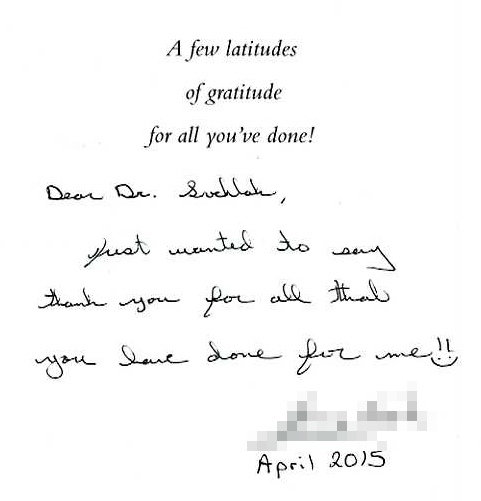 A few latitudes
of gratitude
for all you've done!
Dear Dr. Suchlak,
Just wanted to say
thank you for all that
you have done for me!!
April 2015